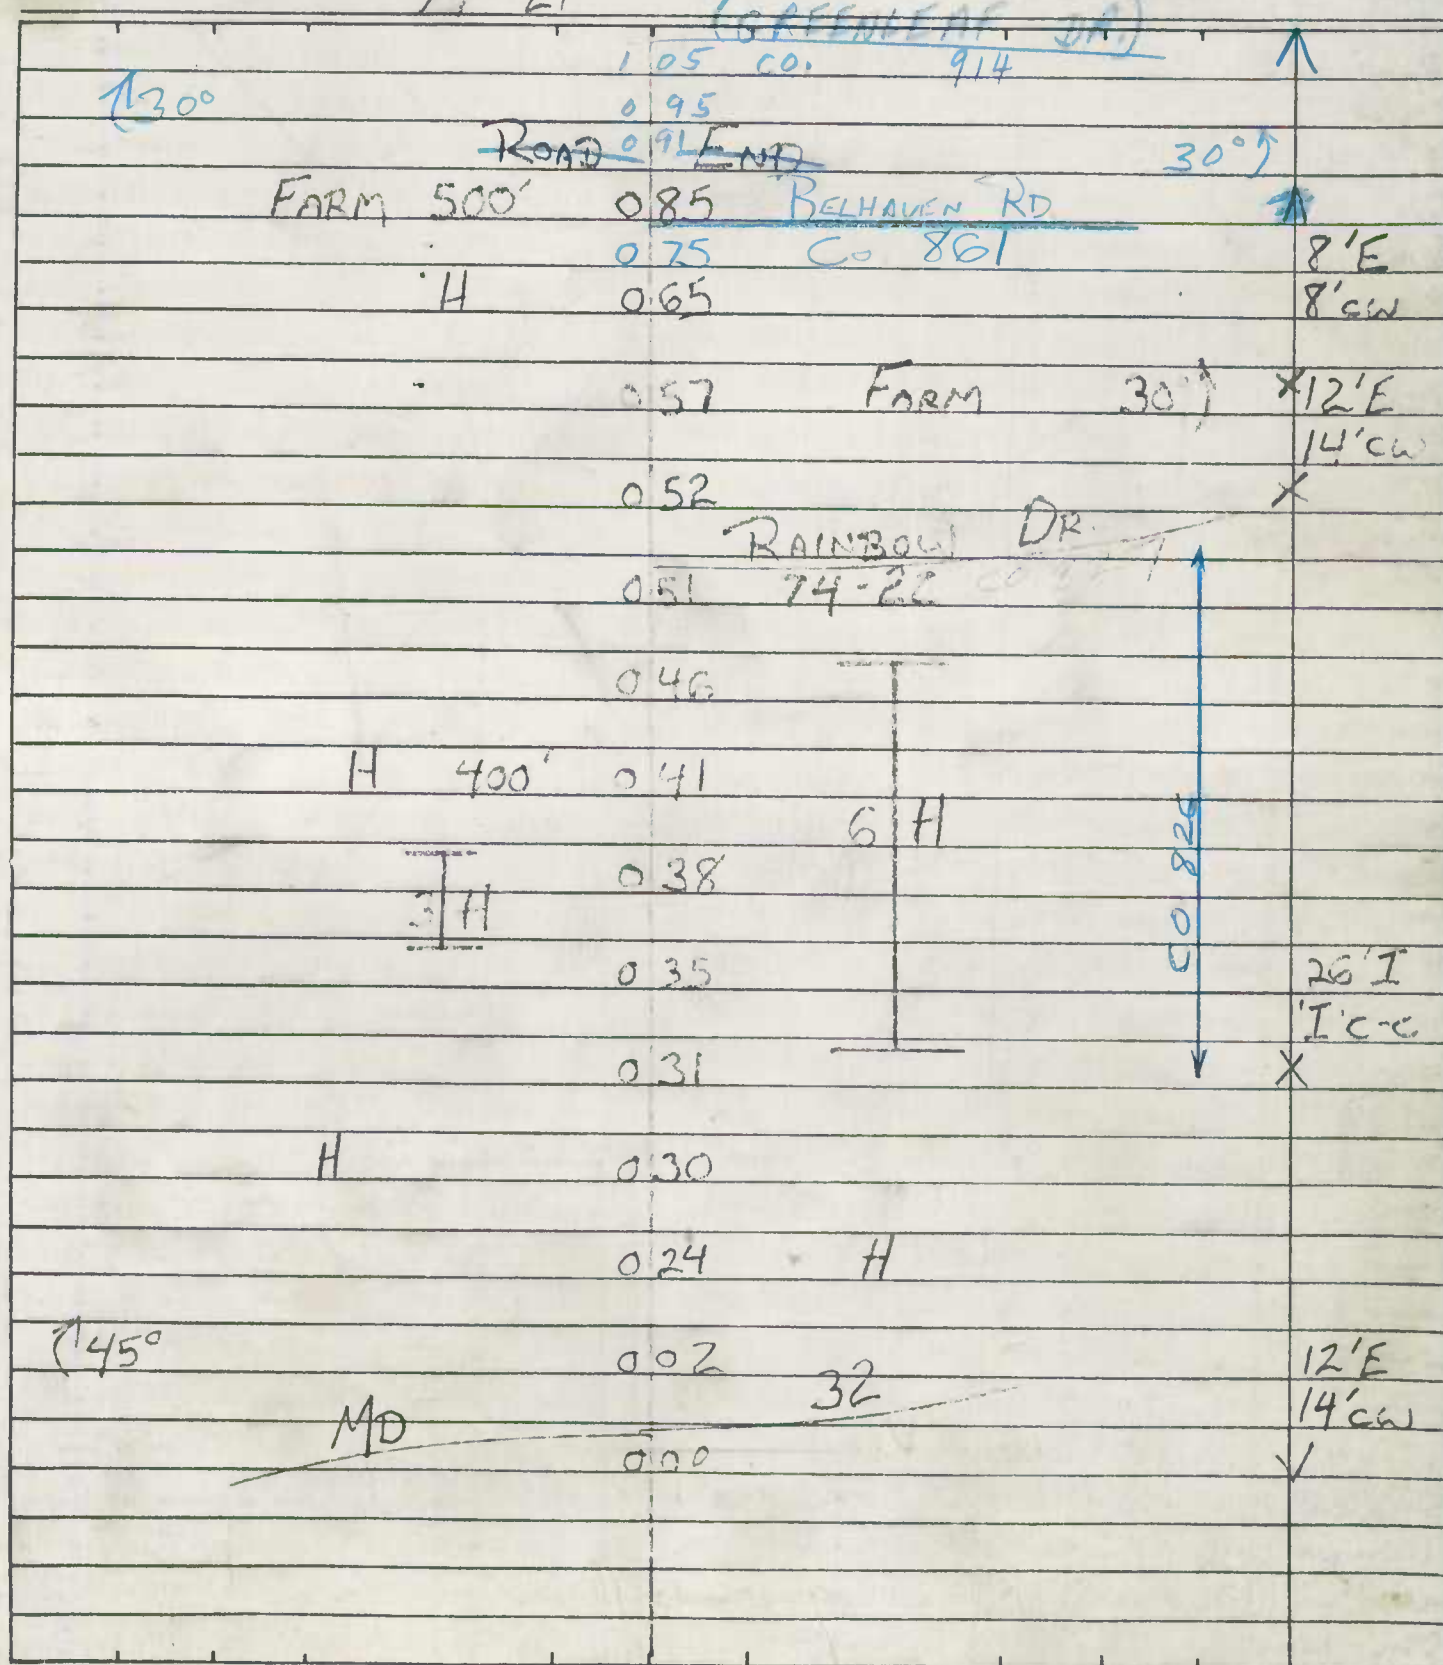 (GREENLEAF DR.)
1 05 CO. 914
30°
0 95
ROAD 0 91 END 30°
FARM 500' 0 85 BELHAVEN RD
0 75 Co 861 8'E
H 0 65 8'CW
0 57 FARM 30° X 12'E
14'CW
0 52 X
RAINBOW DR.
0 51 74-22
0 46
H 400' 0 41
6 H
CO 826
0 38
3 H
0 35 26'I
I'C-C
0 31 X
H 0 30
0 24 H
45° 0 02 12'E
32
14'CW
MD
0 00